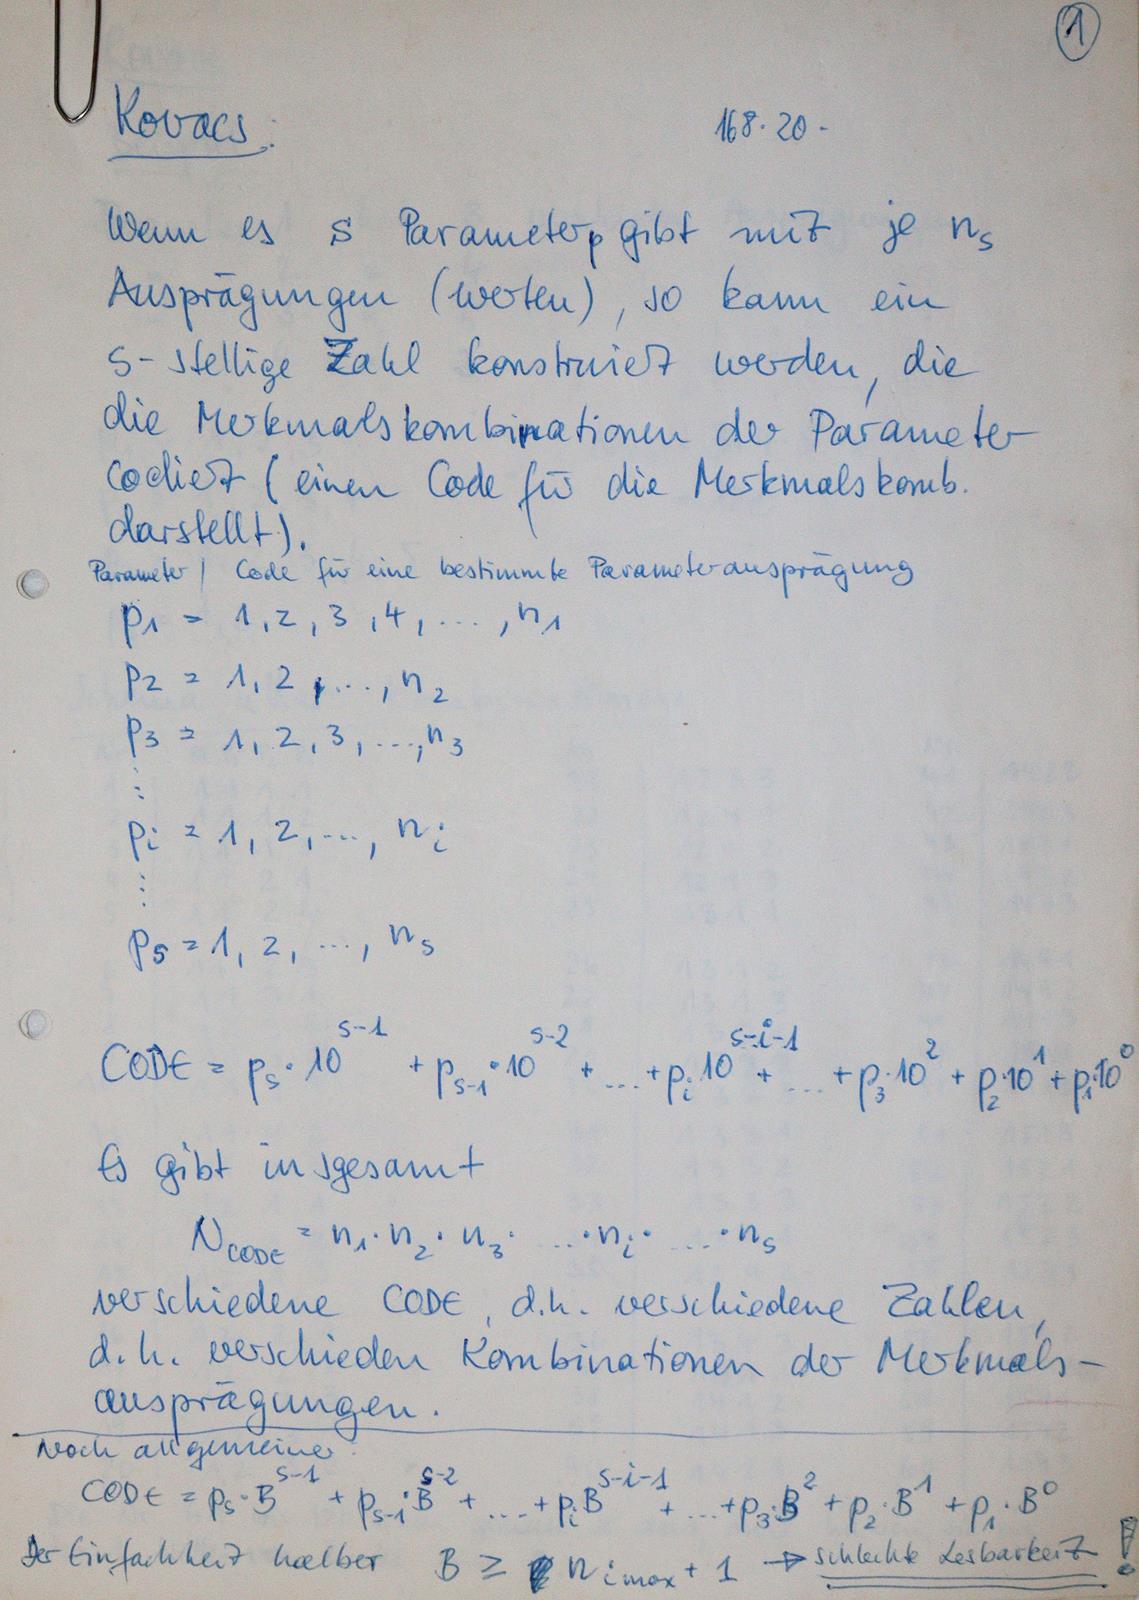 1
Kovacs: 168.20.-
Wenn es s Parameter p gibt mit je n_s
Ausprägungen (Werten), so kann ein
s-stellige Zahl konstruiert werden, die
die Merkmalskombinationen der Parameter
codiert (einen Code für die Merkmalskomb.
darstellt).
Parameter | Code für eine bestimmte Parameterausprägung
p_1 = 1, 2, 3, 4, ..., n_1
p_2 = 1, 2, ..., n_2
p_3 = 1, 2, 3, ..., n_3
⋮
p_i = 1, 2, ..., n_i
⋮
p_s = 1, 2, ..., n_s
CODE = p_s · 10^{s-1} + p_{s-1} · 10^{s-2} + ... + p_i 10^{s-i-1} + ... + p_3 · 10^2 + p_2 · 10^1 + p_1 · 10^0
Es gibt insgesamt
N_CODE = n_1 · n_2 · n_3 · ... · n_i · ... · n_s
verschiedene CODE, d.h. verschiedene Zahlen,
d.h. verschieden Kombinationen der Merkmals-
ausprägungen.
Noch allgemeiner:
CODE = p_s · B^{s-1} + p_{s-1} · B^{s-2} + ... + p_i B^{s-i-1} + ... + p_3 · B^2 + p_2 · B^1 + p_1 · B^0
Der Einfachheit halber B ≥ n_{i max} + 1 → schlechte Lesbarkeit !